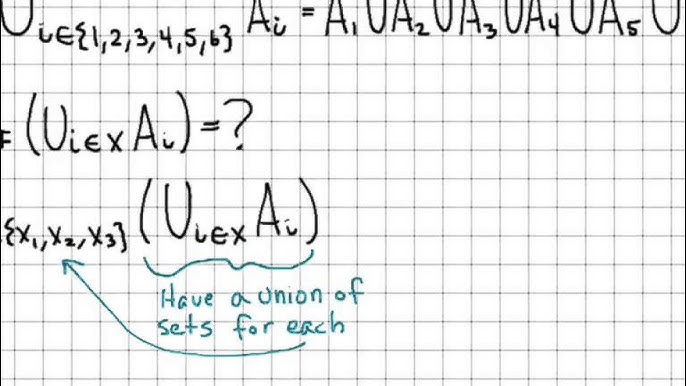 ⋃i∈{1,2,3,4,5,6} Ai = A1∪A2∪A3∪A4∪A5∪
(⋃i∈X Ai) = ?
{X1,X2,X3} (⋃i∈X Ai)
Have a union of
sets for each